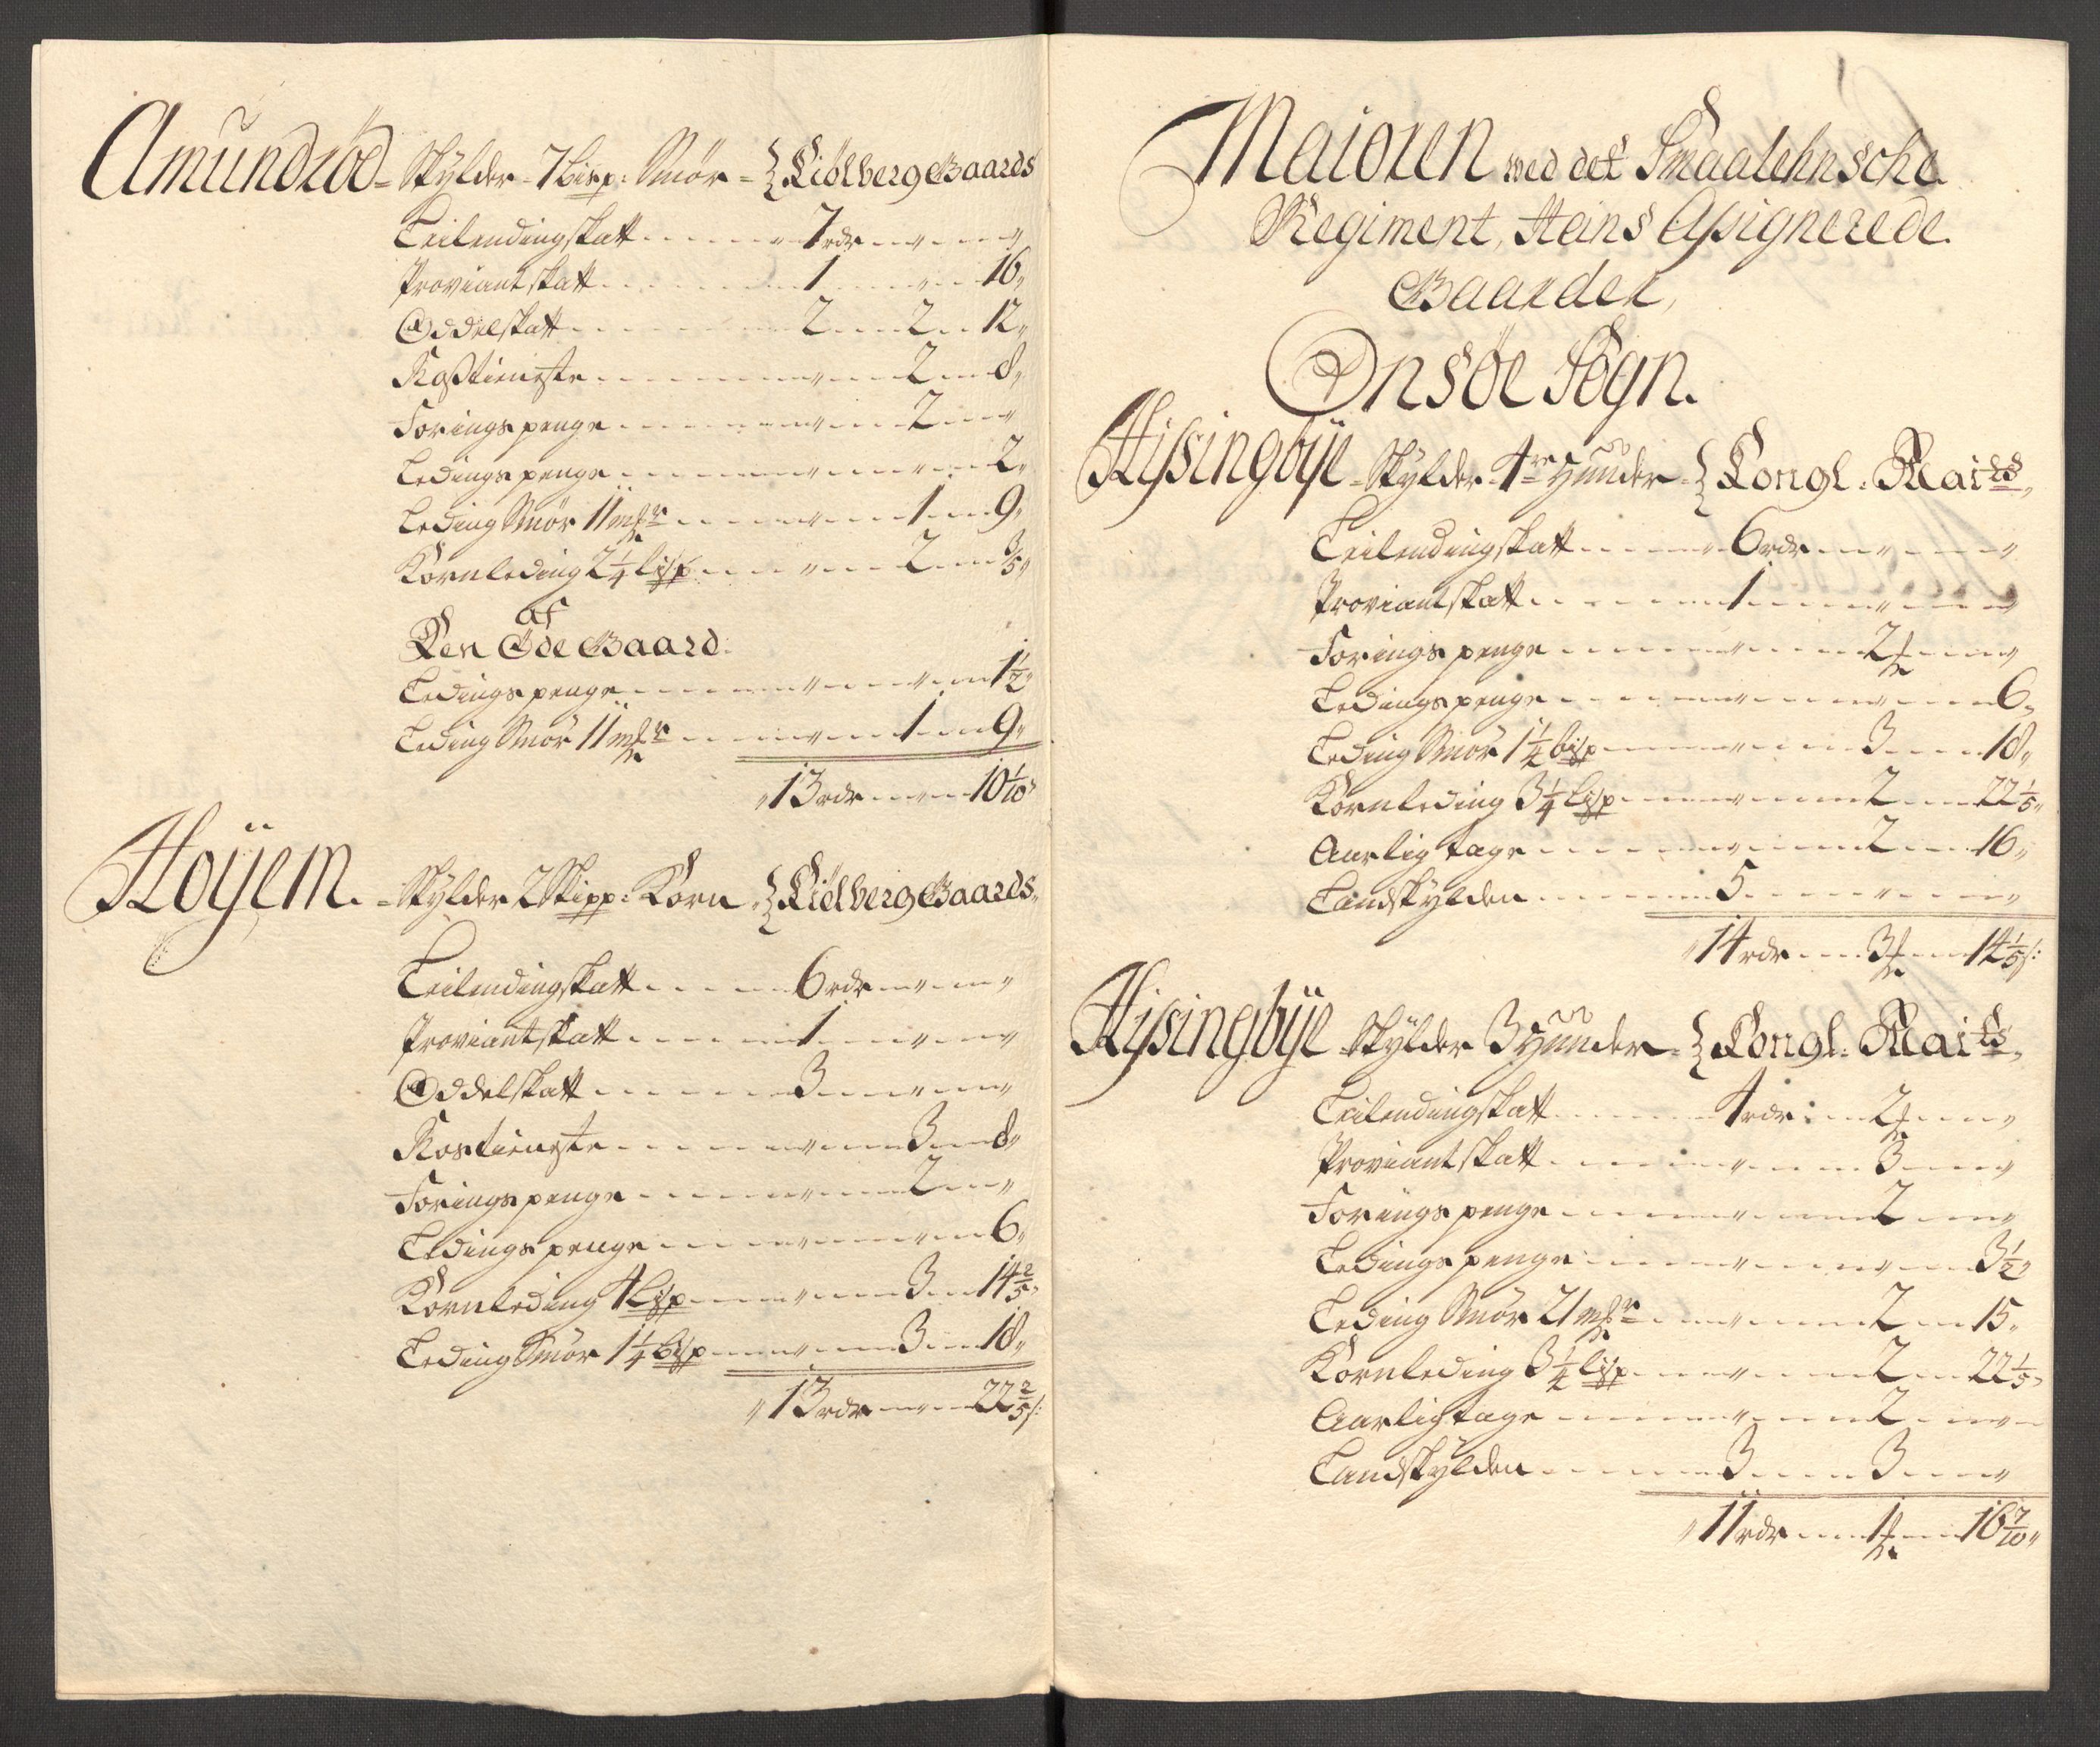 Amundröd - Skylder - 7 bisp: Smör - Kiölberg Gaards
Leilendingskatt 7 rdr " "
Proviantskatt 1 " 16 "
Oddelskatt 2 2 12 "
Rosstienste " 2 8 "
Foringspenge " 2 "
Ledingspenge " " 2 "
Leding Smör 11 mkr " 1 9 "
Kornleding 2 1/4 lisp " 2 3/5 "
af
Den Öde Gaard:
Ledingspenge " " 1 1/2 "
Leding Smör 11 mkr " 1 9 "
" 13 rdr " 10 1/10 s
Höyem. - Skylder 2 Skipp: Korn - Kiölberg Gaards
Leilendingskatt 6 rdr " "
Proviantskatt 1 " "
Oddelskatt 3 " "
Rostienste " 3 8 "
Foringspenge " 2 "
Ledingspenge " " 6 "
Kornleding 4 lisp " 3 14 2/5 "
Leding Smör 1 1/4 bisp " 3 18 "
" 13 rdr " 22 2/5 s:
Maioren wed det Smaalehnsche
Regiment, Hans Assignerede
Gaarder,
Onsöe Sogn.
Hissingbye - Skylder 4re Hunder - Kongl: Maits
Leilendingskatt 6 rdr " "
Proviantskatt 1 " "
Foringspenge " 2 "
Ledingspenge " " 6 "
Leding Smör 1 1/4 bisp " 3 18 "
Kornleding 3 1/4 lisp " 2 22 1/5 "
Aarligtage " 2 16 "
Landskylden 5 " "
" 14 rdr 3 14 1/5 s:
Hissingbye - Skylder 3 Hunder - Kongl: Maits
Leilendingskatt 4 rdr: 2 "
Proviantskatt " 3 "
Foringspenge " 2 "
Ledingspenge " " 3 1/2 "
Leding Smör 21 mkr " 2 15 "
Kornleding 3 1/4 lisp " 2 22 1/5 "
Aarligtage " 2 "
Landskylden 3 3 "
" 11 rdr 1 16 7/10 "